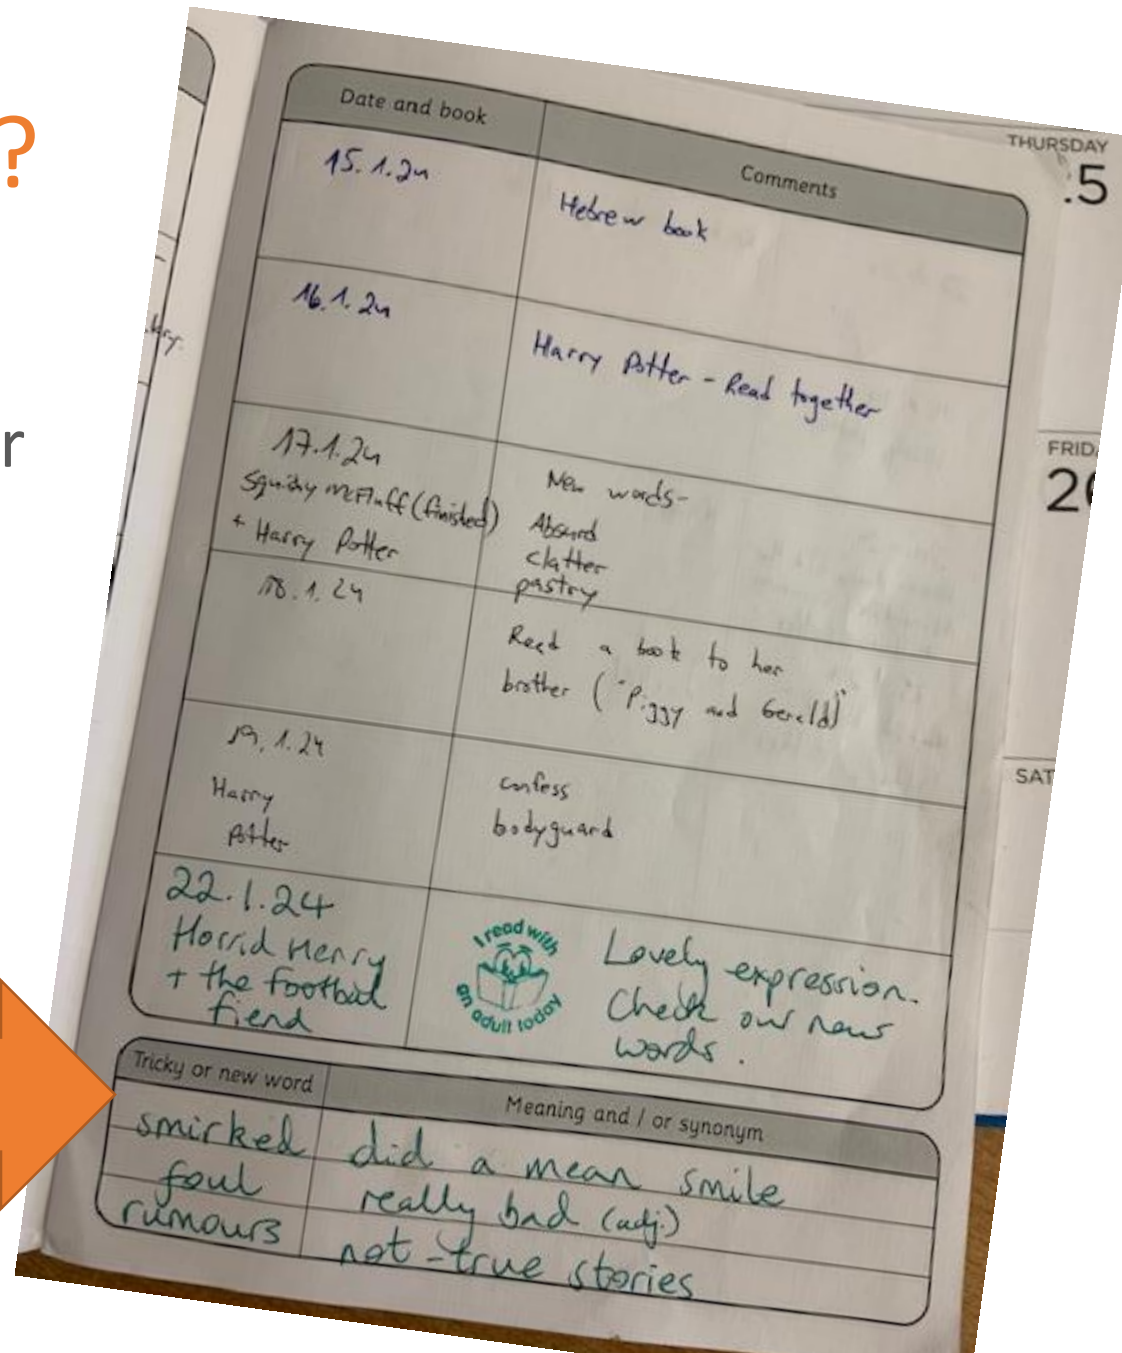 ?
r
THURSDAY
.5
FRID
2
SAT
Date and book
Comments
15.1.24
Hebrew book
16.1.24
Harry Potter - Read together
17.1.24
Squishy McFluff (finished)
+ Harry Potter
New words-
Absurd
clatter
pastry
18.1.24
Read a book to her
brother ("Piggy and Gerald)"
19.1.24
Harry
Potter
confess
bodyguard
22.1.24
Horrid Henry
+ the football
fiend
I read with
an adult today
Lovely expression.
Check our new
words.
Tricky or new word
Meaning and / or synonym
smirked
did a mean smile
foul
really bad (adj.)
rumours
not-true stories